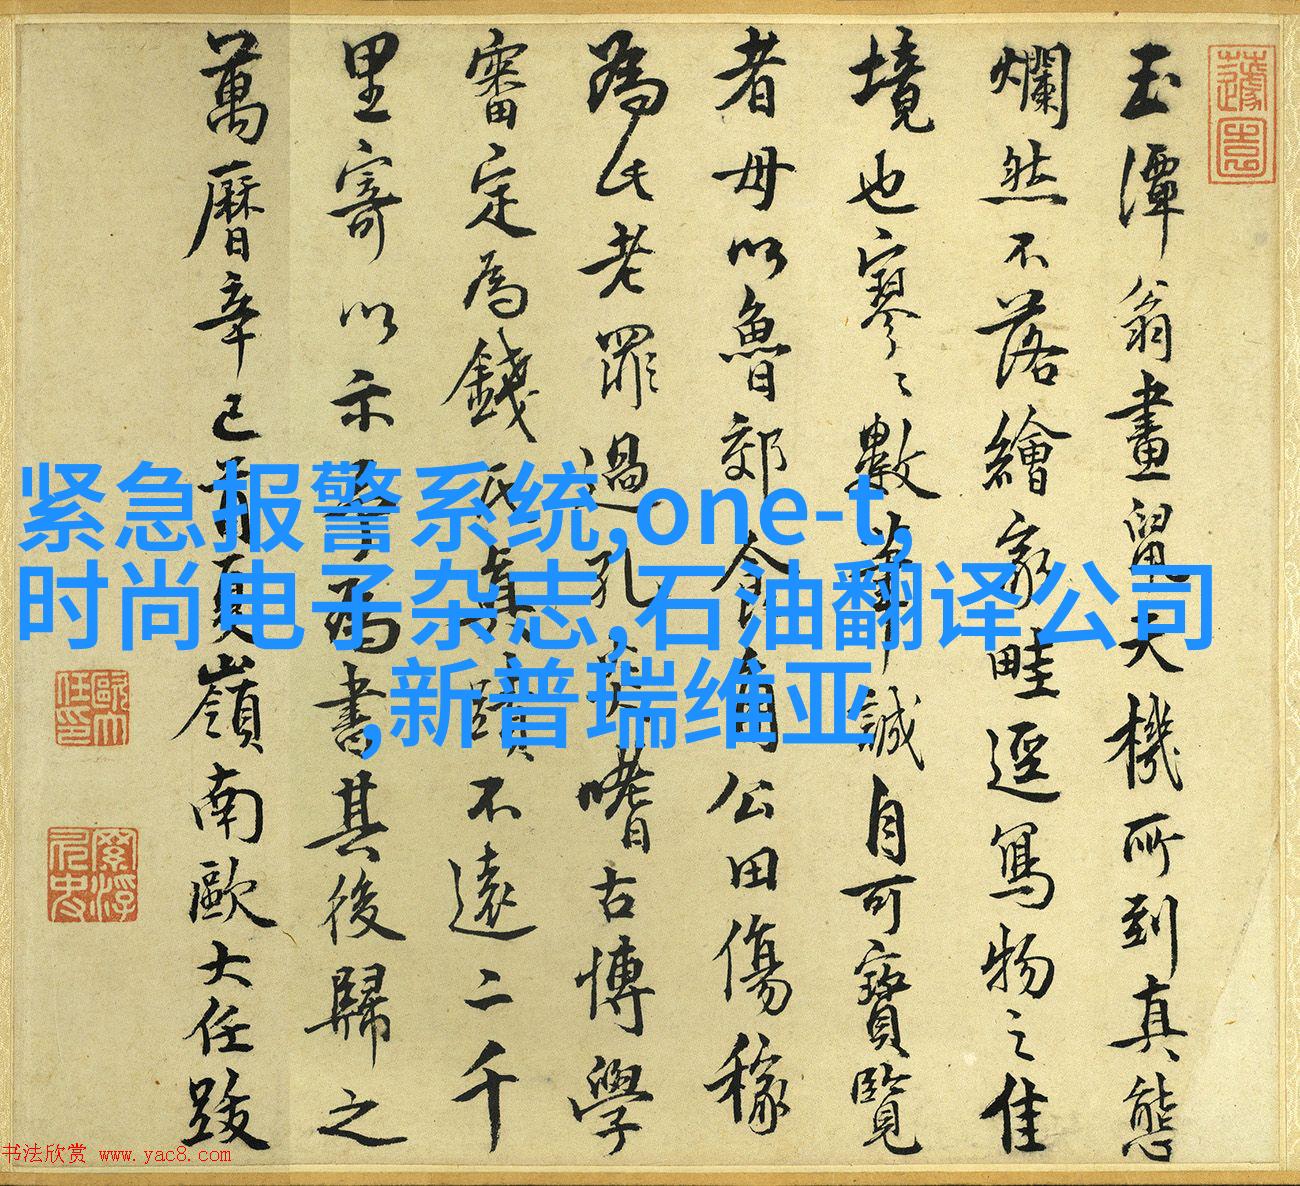 玉潭翁畫鼠天機所到真態
爛然不落繪家畦逕寫物之佳
境也寥〻數筆誠自可寶覽
者毋以魯郊食角公田傷稼
為氏老罪過孔炎嗜古博學
審定為錢氏真蹟不遠二千
里寄以示余為書其後歸之
萬曆辛巳首夏嶺南歐大任跋
紧急报警系统,one-t,
时尚电子杂志,石油翻译公司
,新普瑞维亚
歐大任印
書法欣賞 www.yac8.com